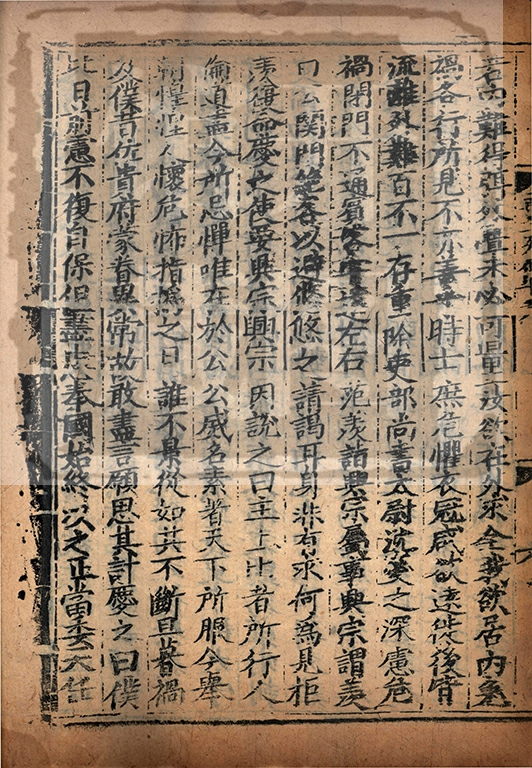 者內難得弭外釁未必可量汝欲在外求全我欲居內免
禍各行所見不亦善乎時士庶危懼衣冠咸欲遠徙後皆
流離外難百不一存重除吏部尚書太尉沈慶之深慮危
禍閉門不通賓客嘗遣左右范羨詣興宗屬事興宗謂羨
曰公關門絶客以避悠悠之請謁耳身非有求何爲見拒
羨復命慶之使要興宗興宗因說之曰主上比者所行人
倫道盡今所忌憚唯在於公公威名素著天下所服今舉
朝惶惶人懷危怖指撝之日誰不景從如其不斷旦暮禍
及僕昔佐貴府蒙眷異常故敢盡言願思其計慶之曰僕
日前憲不復自保但盡忠奉國始終以之正當委天任